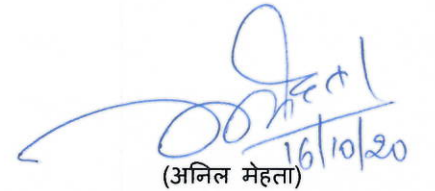 मेहता
16/10/20
(अनिल मेहता)